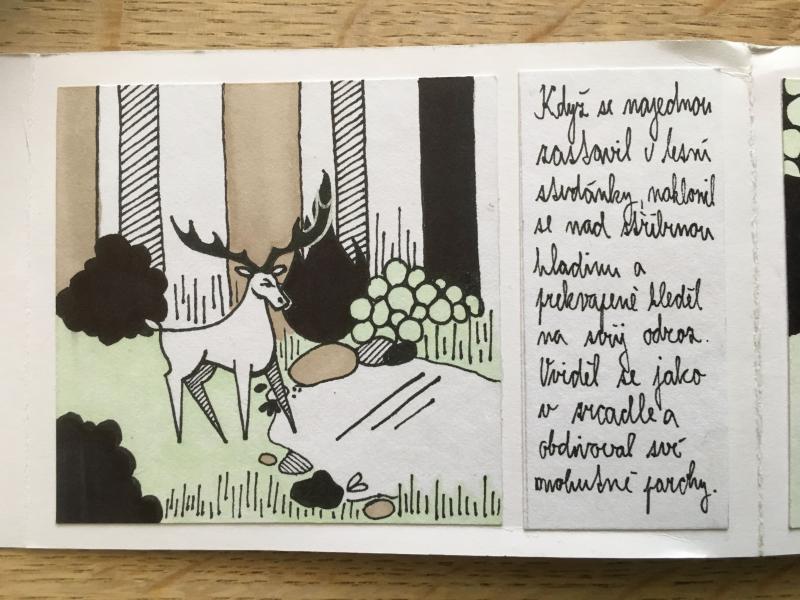 Když se najednou
zastavil v lesní
studánky, naklonil
se nad stříbrnou
hladinu a
překvapeně hleděl
na svůj odraz.
Uviděl se jako
v zrcadle a
obdivoval své
mohutné parohy.